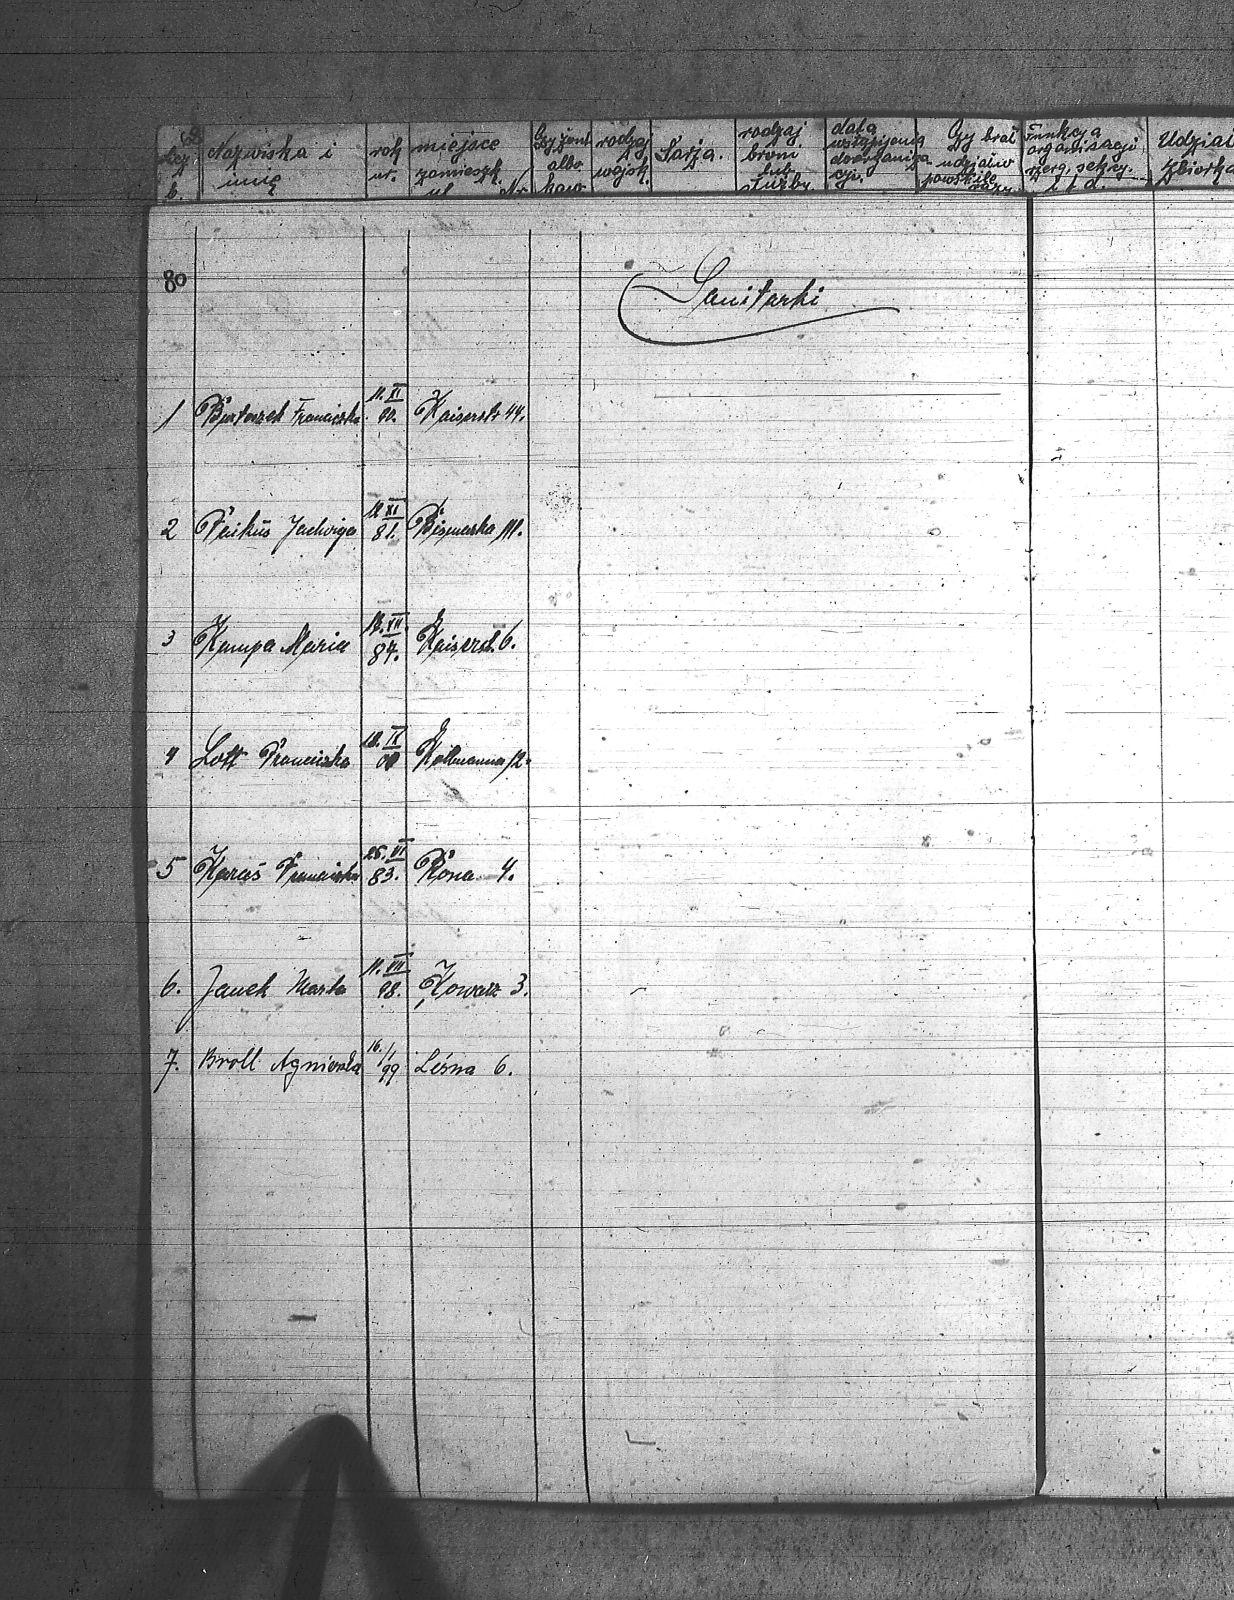 Nazwiska i imię
rok ur.
miejsce zamieszk. ul. Nr
Czy żon. albo kaw.
rodzaj wojsk.
Sarża.
rodzaj broni lub służby
data wstąpienia
Czy brał udział w powst. ile razy
funkcja organizacji
i t d.
Udział
Zbiórka
80
Sanitarki
1 Bartoszek Franciszka 11. XI 90. Kaiserstr 44.
2 Jadwiga 12. XI 81. Bismarka 111.
3 Kampa Maria 13. VII 87. Kaiserst. 6.
4 Lott Franciszka 10. IX 00 12.
5 Karaś Franciszka 25. VI 83. Róna 4.
6. Janek Marta 11. VII 98. 3.
7. Kroll Agnieszka 16. 1/99 Leśna 6.